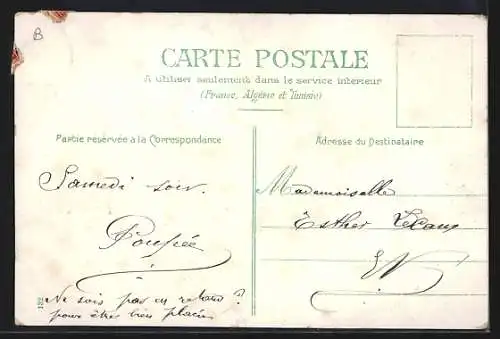 B
CARTE POSTALE
A utiliser seulement dans le service intérieur
(France, Algérie et Tunisie)
Partie réservée à la Correspondance
Adresse du Destinataire
Samedi soir.
Poupée
Ne sois pas en retard ?
pour être bien placée
132
Mademoiselle
Esther
EV